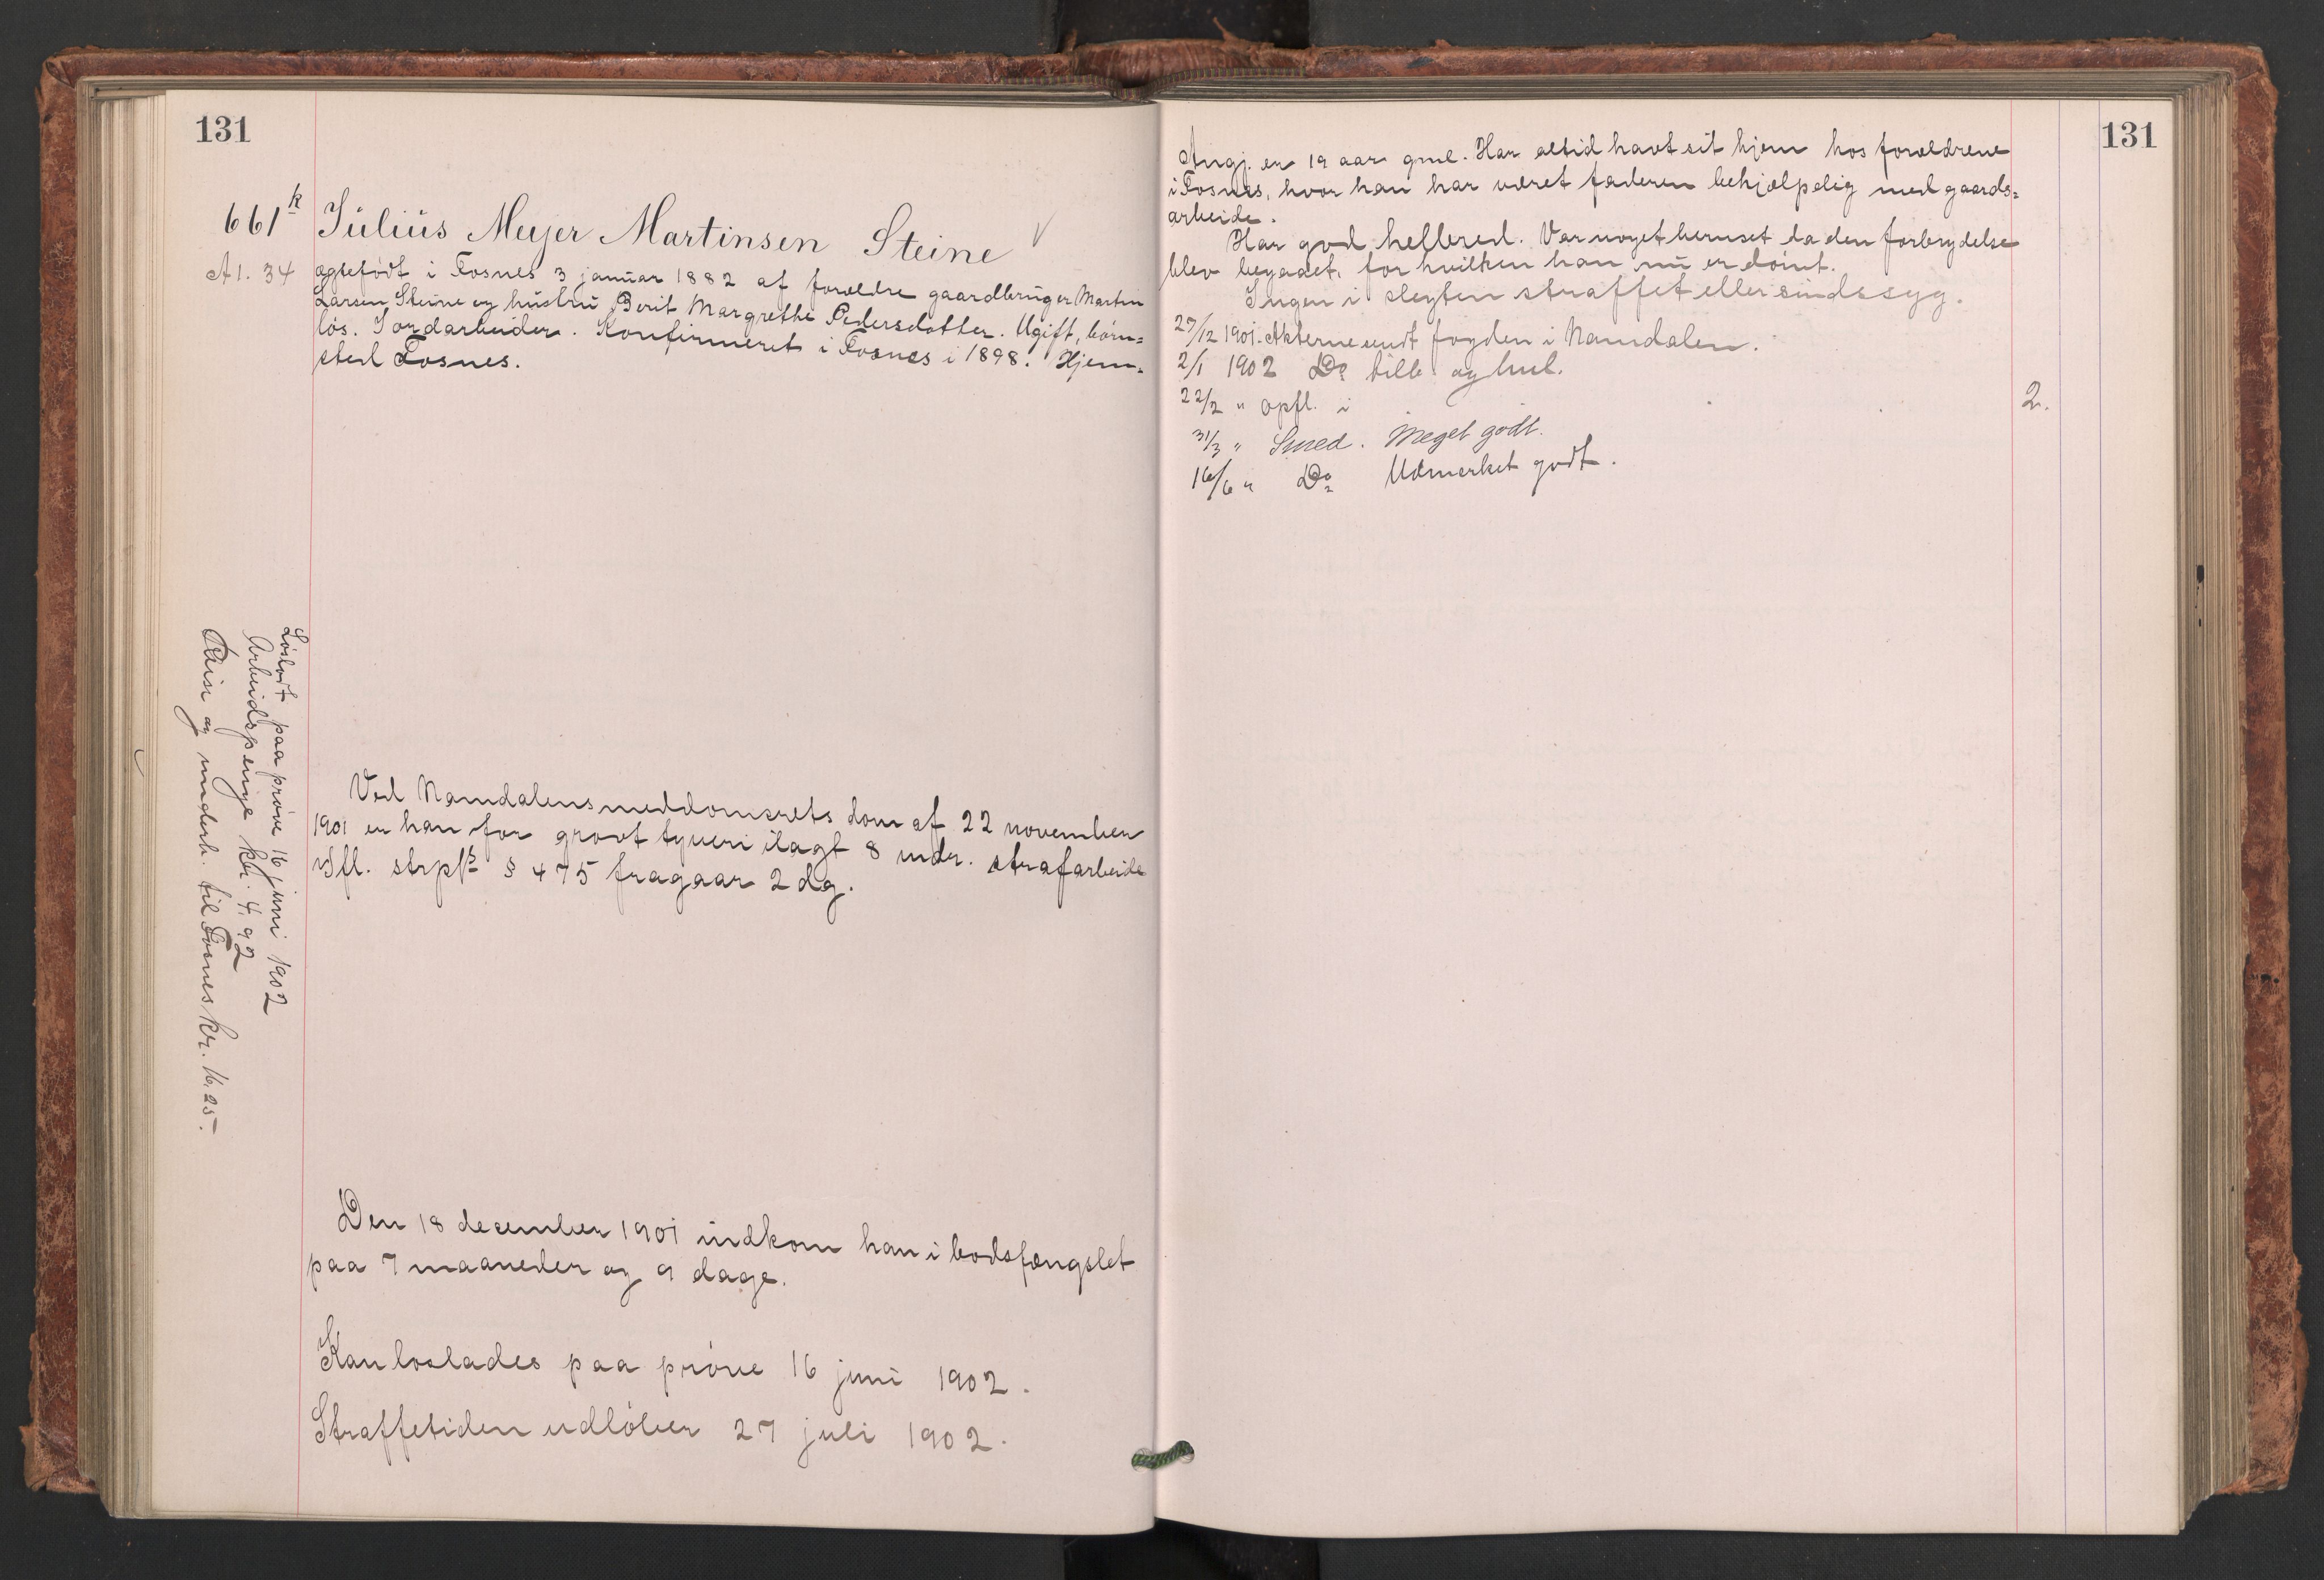 131
661k Júliús Meyer Martinsen Steine √
A1. 34 ægtefödt i Fosnes 3 janúar 1882 af forældre gaardbrúger Martin
Larsen Steine og hústrú Berit Margrethe Pedersdatter. Ugift, barn=
lös. Jordarbeider. Konfirmeret i Fosnes i 1898. Hjem=
sted Fosnes.
Lösladt paa pröve 16 juni 1902
Arbeidspenge kr. 4,92
Reise og underh. til Fosnes kr. 16,25.
Ved Namdalens meddomsrets dom af 22 november
1901 er han for grovt tyveri ilagt 8 mdr. strafarbeide
Ifl. strpl. § 475 fragaar 2 dg.
Den 18 december 1901 indkom han i bodsfængslet
paa 7 maaneder og 9 dage.
Kan loslades paa pröve 16 juni 1902.
Straffetiden udlöber 27 juli 1902.
131
Angj. er 19 aar gml. Har altid havt sit hjem hos forældrene
i Fosnes, hvor han har været faderen behjælpelig med gaards=
arbeide.
Har god helbred. Var noget beruset da den forbrydelse
blev begaaet, for hvilken han nú er dömt.
Ingen i slegten straffet eller sindssyg.
27/12 1901. Akterne sendt fogden i Namdalen.
2/1 1902 Do tilb. og
22/2 " opfl. i 2.
31/3 " Smed. Meget godt.
16/6 " Do Udmerket godt.